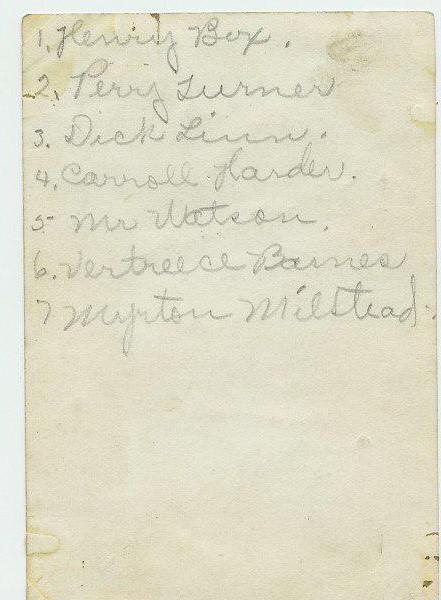 1. Henry Box.
2. Perry Turner
3. Dick Linn.
4. Carroll Harder.
5 Mr Watson.
6. Vertreece Barnes
7 Myrton Milstead.